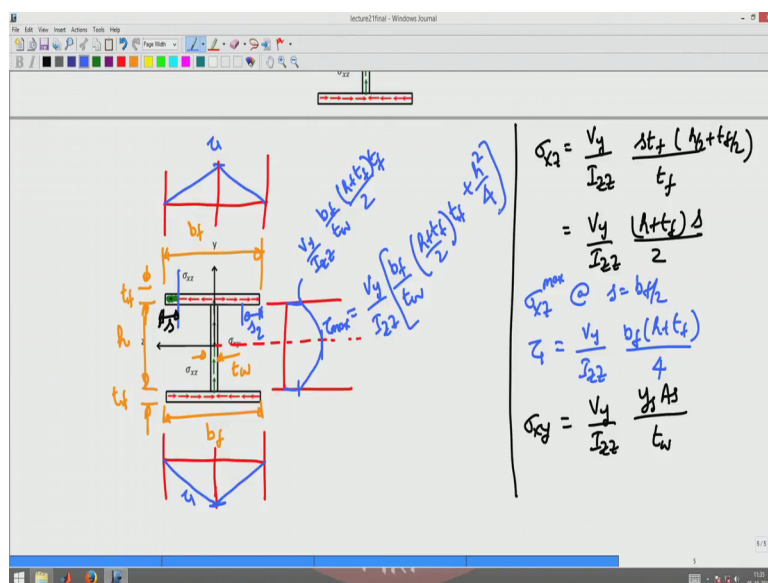 lecture21final - Windows Journal
File Edit View Insert Actions Tools Help
Page Width
B I
σxz
τ₁
bf
y
tf
σxz
s
s₂
h
z
σxz
tw
tf
bf
τ₁
Vy/Izz bf/tw (h+tf)/2 tf
τmax = Vy/Izz [bf/tw ((h+tf)/2) tf + h²/4]
σxz = Vy/Izz stf (h/2+tf/2)/tf
= Vy/Izz (h+tf) s/2
σxz^max @ s = bf/2
τ₁ = Vy/Izz bf(h+tf)/4
σxy = Vy/Izz ys As/tw
5/5
5
11:35